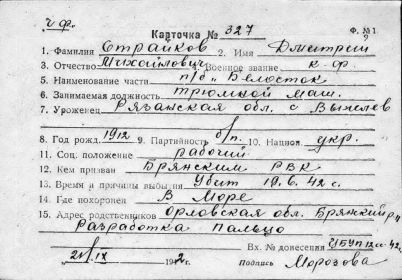 ч.ф.
Карточка № 327 Ф. № 1
1. Фамилия Страйков 2. Имя Дмитрий
3. Отчество Михайлович 4. Военное звание к-ф
5. Наименование части п/б „Белосток"
6. Занимаемая должность трюмной маш.
7. Уроженец Рязанская обл. с
8. Год рожд. 1912 9. Партийность б/п. 10. Национ. укр.
11. Соц. положение рабочий
12. Кем призван Брянским РВК
13. Время и причины выбытия Убит 19.6.42 г.
14. Где похоронен В Море
15. Адрес родственников Орловская обл. Брянский р-н
Разработка Пальцо
Вх. № донесения
21/IX 1942 г. Подпись Морозова